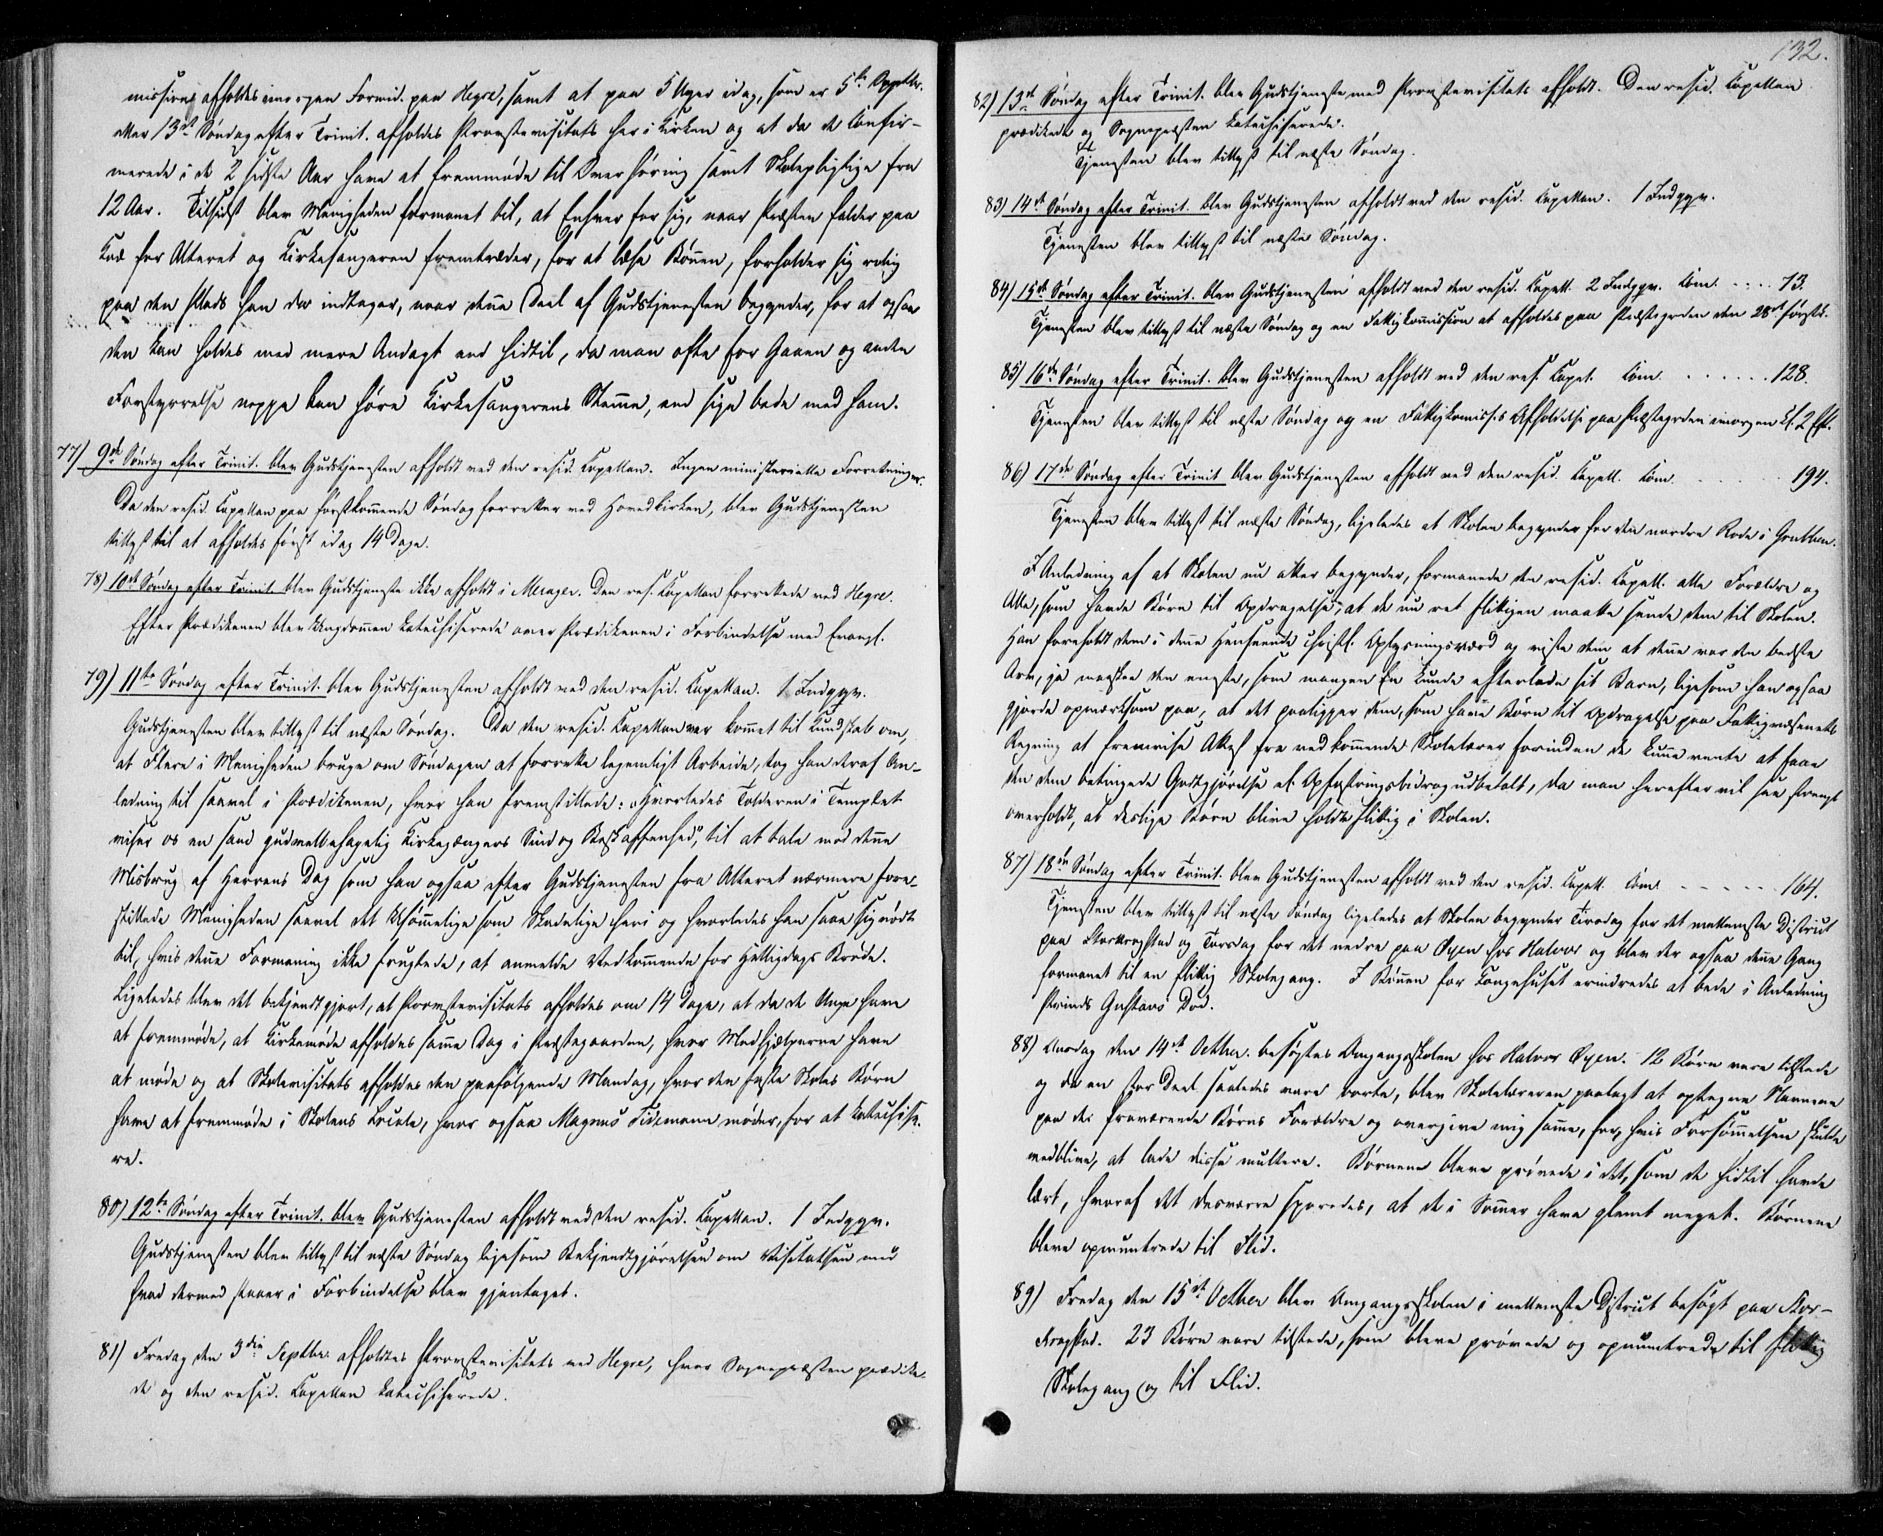 mission afholdes imorgen Formid. paa Hegre, samt at paa 5 Uger idag, som er 5te Septbr.
eller 13de Søndag efter Trinit. afholdes Provstevisitats her i Kirken og at da de Confir-
merede i de 2 sidste Aar have at fremmøde til Overhøring samt Skolepligtige fra
12 Aar. Tilsidst blev Menigheden formanet til, at Enhver for sig, naar Præsten falder paa
Knæ for Alteret og Kirkesangeren fremtræder, for at læse Bønnen, forholder sig rolig
paa den Plads han da indtager, naar denne Deel af Gudstjenesten begynder, for at ogsaa
den kan holdes med mere Andagt end hidtil, da man ofte for Gaaen og anden
Forstyrrelse neppe kan høre Kirkesangerens Stemme, end sige bede med ham.
77) 9de Søndag efter Trinit. blev Gudstjenesten afholdt ved den resid. Capellan. Ingen ministerielle Forretninger.
Da den resid. Capellan paa førstkommende Søndag forretter ved Hovedkirken, blev Gudstjenesten
tillyst til at afholdes først idag 14 Dage.
78) 10de Søndag efter Trinit. blev Gudstjeneste ikke afholdt i Merager. Den res. Capellan forrettede ved Hegre.
Efter Prædikenen blev Ungdommen katechiserede over Prædikenen i Forbindelse med Evangl.
79) 11te Søndag efter Trinit. blev Gudstjenesten afholdt ved den resid. Capellan. 1 Indggn.
Gudstjenesten blev tillyst til næste Søndag. Da den resid. Capellan var kommet til Kundskab om,
at Flere i Menigheden bruge om Søndagen at forrette legemligt Arbeide, tog han deraf An-
ledning til saavel i Prædikenen, hvor han fremstillede: "Hvorledes Tolderen i Templet
viser os en sand gudvelbehagelig Kirkegængers Sind og Beskaffenhed," til at tale mod denne
Misbrug af Herrens Dag som han ogsaa efter Gudstjenesten fra Alteret nærmere fore-
stillede Menigheden saavel det Usømmelige som Skadelige heri og hvorledes han saae sig nødt
til, hvis denne Formaning ikke frugtede, at anmelde Vedkommende for Helligdags Brøde.
Ligeledes blev det bekjendtgjort, at Provstevisitats afholdes om 14 Dage, at da de Unge have
at fremmøde, at Kirkemøde afholdes samme Dag i Præstegaarden, hvor Medhjælperne have
at møde og at Skolevisitats afholdes den paafølgende Mandag, hvor den faste Skoles Børn
have at fremmøde i Skolens Locale, hvor ogsaa Magnus Tidemann møder, for at katechise-
re.
80) 12te Søndag efter Trinit. blev Gudstjenesten afholdt ved den resid. Capellan. 1 Indggn.
Gudstjenesten blev tillyst til næste Søndag ligesom Bekjendtgjørelsen om Visitatsen med
hvad dermed staaer i Forbindelse blev gjentaget.
81) Fredag den 3die Septbr. afholdtes Provstevisitats ved Hegre, hvor Sognepræsten prædike-
de og den resid. Capellan katechiserede.
132.
82) 13de Søndag efter Trinit. blev Gudstjeneste med Provstevisitats afholdt. Den resid. Capellan
prædikede og Sognepræsten katechiserede.
Tjenesten blev tillyst til næste Søndag.
83) 14de Søndag efter Trinit. blev Gudstjenesten afholdt ved den resid. Capellan. 1 Indggn.
Tjenesten blev tillyst til næste Søndag.
84) 15de Søndag efter Trinit. blev Gudstjenesten afholdt ved den resid. Capell. 2 Indggn. Com. . . . . 73.
Tjenesten blev tillyst til næste Søndag og en Fattigkommission at afholdes paa Præstegrden den 28de førstk.
85) 16de Søndag efter Trinit. blev Gudstjenesten afholdt ved den res. Capel. Com. . . . . . . 128.
Tjenesten blev tillyst til næste Søndag og en Fattigkomiss.s Afholdelse paa Præstegrden imorgen Kl. 2 Eft.
86) 17de Søndag efter Trinit blev Gudstjenesten afholdt ved den resid. Capell. Com. . . . . . 194.
Tjenesten blev tillyst til næste Søndag, ligeledes at Skolen begynder for den nordre Rode i
I Anledning af at Skolen nu atter begynder, formanede den resid. Capell. alle Forældre og
Alle, som havde Børn til Opdragelse, at de nu ret flittigen maatte sende dem til Skolen.
Han foreholdt dem i denne Henseende christl. Oplysningsværd og viste dem at denne var den bedste
Arv, ja maaskee den eneste, som mangen En kunde efterlade sit Barn, ligesom han ogsaa
gjorde opmærksom paa, at det paaligger dem, som have Børn til Opdragelse paa Fattigvæsenets
Regning at fremvise Attest fra vedkommende Skolelærer forinden de kunne vente at faae
den dem betingede Godtgjørelse el. Opfostringsbidrag udbetalt, da man herefter vil see strengt
overholdt, at deslige Børn blive holdte flittig i Skolen.
87) 18de Søndag efter Trinit. blev Gudstjenesten afholdt ved den resid. Capell. Com. . . . . . 164.
Tjenesten blev tillyst til næste Søndag ligeledes at Skolen begynder Tirsdag for det mellemste District
paa Storkrogstad og Torsdag for det nedre paa Øyen hos Halvor og blev der ogsaa denne Gang
formanet til en flittig Skolegang. I Bønnen for Kongehuset erindredes at bede i Anledning
Prinds Gustavs Død.
88) Onsdag den 14de Octber. besøgtes Omgangsskolen hos Halvor Øyen. 12 Børn vare tilstede
og da en stor Deel saaledes vare borte, blev Skolelæreren paalagt at optegne Navnene
paa de fraværende Børns Forældre og overgive mig samme, for, hvis Forsømmelsen skulde
vedblive, at lade disse multere. Børnene bleve prøvede i det, som de hidtil havde
lært, hvoraf det desværre sporedes, at de i Sommer have glemt meget. Børnene
bleve opmuntrede til Flid.
89) Fredag den 15de Octber blev Omgangsskolen i mellemste District besøgt paa Stor-
krogstad. 23 Børn vare tilstede, som bleve prøvede og opmuntrede til flittig
Skolegang og til Flid.